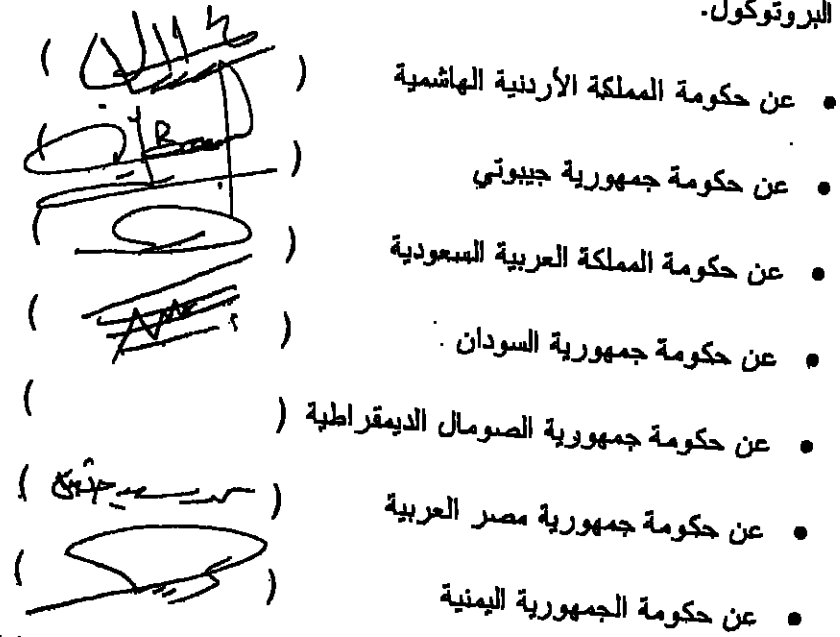 البروتوكول.
• عن حكومة المملكة الأردنية الهاشمية ( )
• عن حكومة جمهورية جيبوتي ( )
• عن حكومة المملكة العربية السعودية ( )
• عن حكومة جمهورية السودان ( )
• عن حكومة جمهورية الصومال الديمقراطية ( )
• عن حكومة جمهورية مصر العربية ( )
• عن حكومة الجمهورية اليمنية ( )